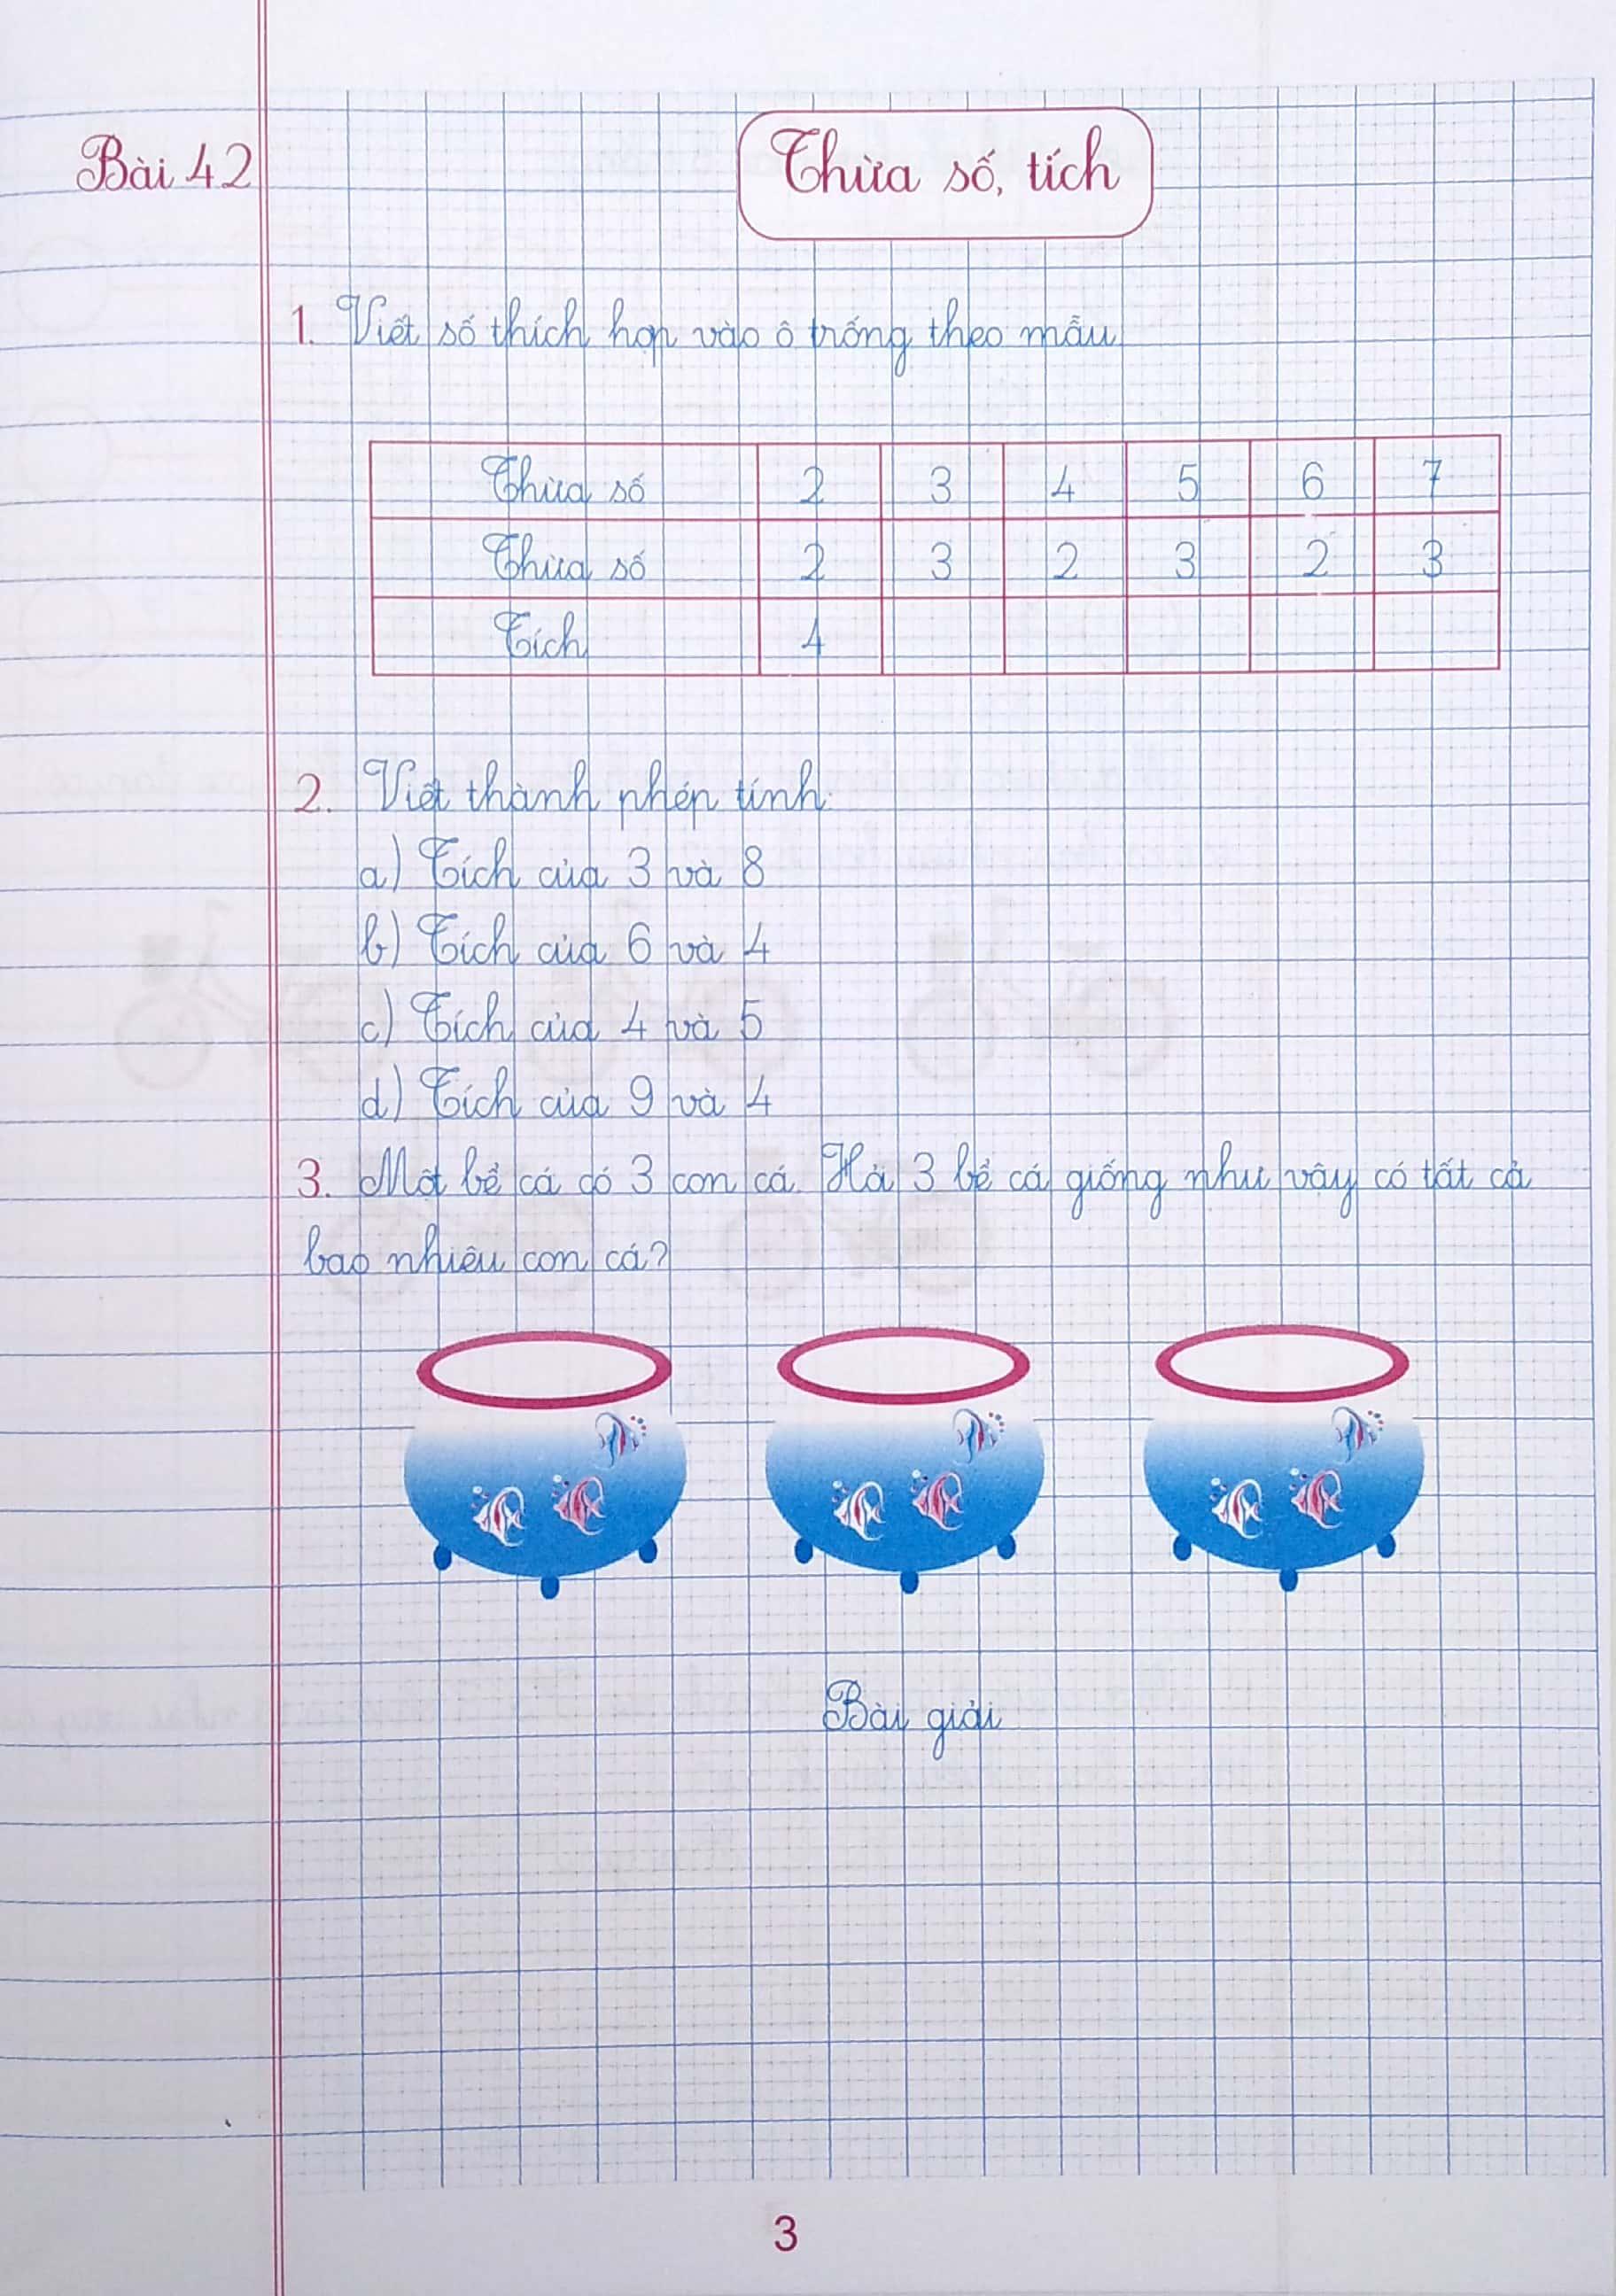 Bài 42
Thừa số, tích
1. Viết số thích hợp vào ô trống theo mẫu
Thừa số 2 3 4 5 6 7
Thừa số 2 3 2 3 2 3
Tích 4
2. Viết thành phép tính:
a) Tích của 3 và 8
b) Tích của 6 và 4
c) Tích của 4 và 5
d) Tích của 9 và 4
3. Một bể cá có 3 con cá. Hỏi 3 bể cá giống như vậy có tất cả
bao nhiêu con cá?
Bài giải
3